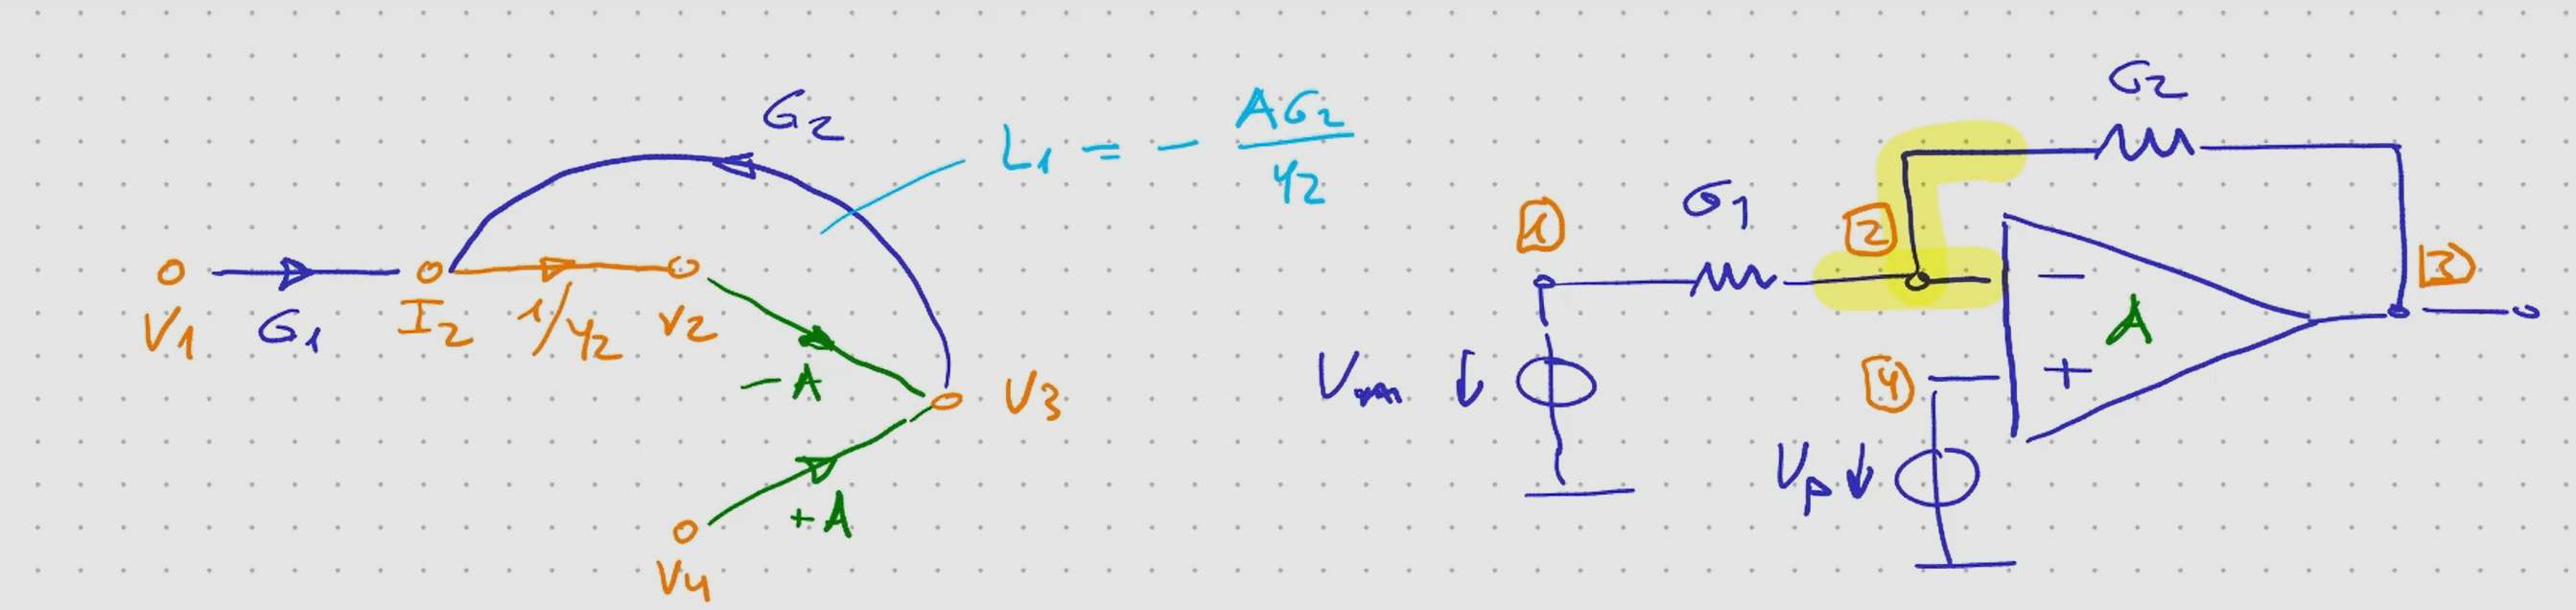 G2
L1 = - AG2/Y2
V1
G1
I2
1/Y2
V2
-A
V3
+A
V4
G2
G1
1
2
3
4
-
+
A
Vm
Vp